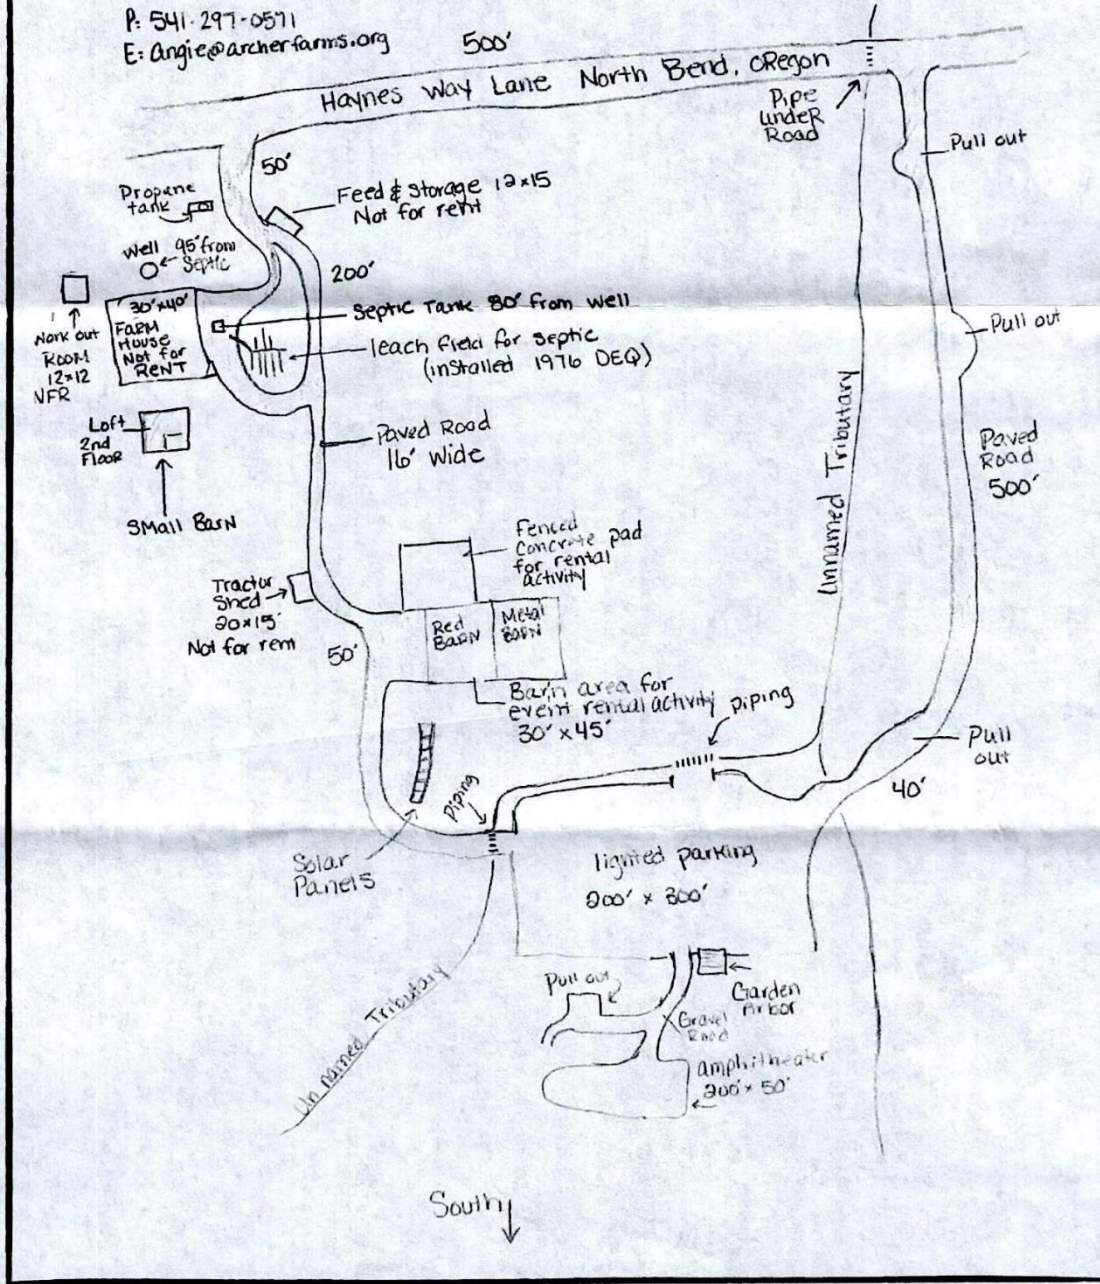 P: 541-297-0571
E: angie@archerfarms.org
500'
Haynes Way Lane North Bend, ORegon
Pipe
under
Road
Pull out
50'
Propane
tank
Feed & Storage 12x15
Not for rent
Well 95' from
Septic
200'
Septic Tank 80' from well
leach field for septic
(installed 1976 DEQ)
30'x40'
FARM
House
Not for
RENT
Work out
ROOM
12x12
NFR
Pull out
Loft
2nd
Floor
Small Barn
Paved Road
16' Wide
Unnamed Tributary
Paved
Road
500'
Fenced
Concrete pad
for rental
activity
Tractor
Shed
20x15'
Not for rent
Red
Barn
Metal
Barn
50'
Barn area for
event rental activity
30' x 45'
piping
Piping
Pull
out
40'
Solar
Panels
lighted parking
200' x 300'
Un named Tributary
Pull out
Garden
Arbor
Gravel
Road
amphitheater
200' x 50'
South